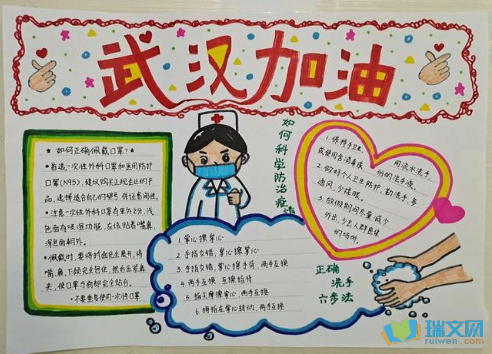 武汉加油
如何正确佩戴口罩?
首选一次性外科口罩和医用防护
口罩(N95),建议购买正规出业的产
品,选择适合自己的型号,保证密闭性。
注意一次性外科口罩有里外2分,浅
色面有吸湿功能,应该贴着嘴鼻,
深色面朝外。
佩戴时,要将折面完全展开,将
嘴、鼻、下颌完全包住,然后压紧鼻
夹,使口罩与面部完全贴合。
不要重复使用一次性口罩
如何科学防治疫情
1.保持手卫生,用流水洗手,
或使用含消毒成份的洗手液。
2.做好个人卫生防护,勤洗手,多
通风,少揉眼。
3.放假期间尽量减少
外出,少去人群密集
的场所。
1.掌心擦掌心
2.手指交错,掌心擦掌心
3.手指交错,掌心擦手背,两手互换
4.两手互握,互擦指背
5.指尖摩擦掌心,两手互换
6.拇指在掌心转动,两手互换
正确
洗手
六步法
瑞文网
ruiwen.com